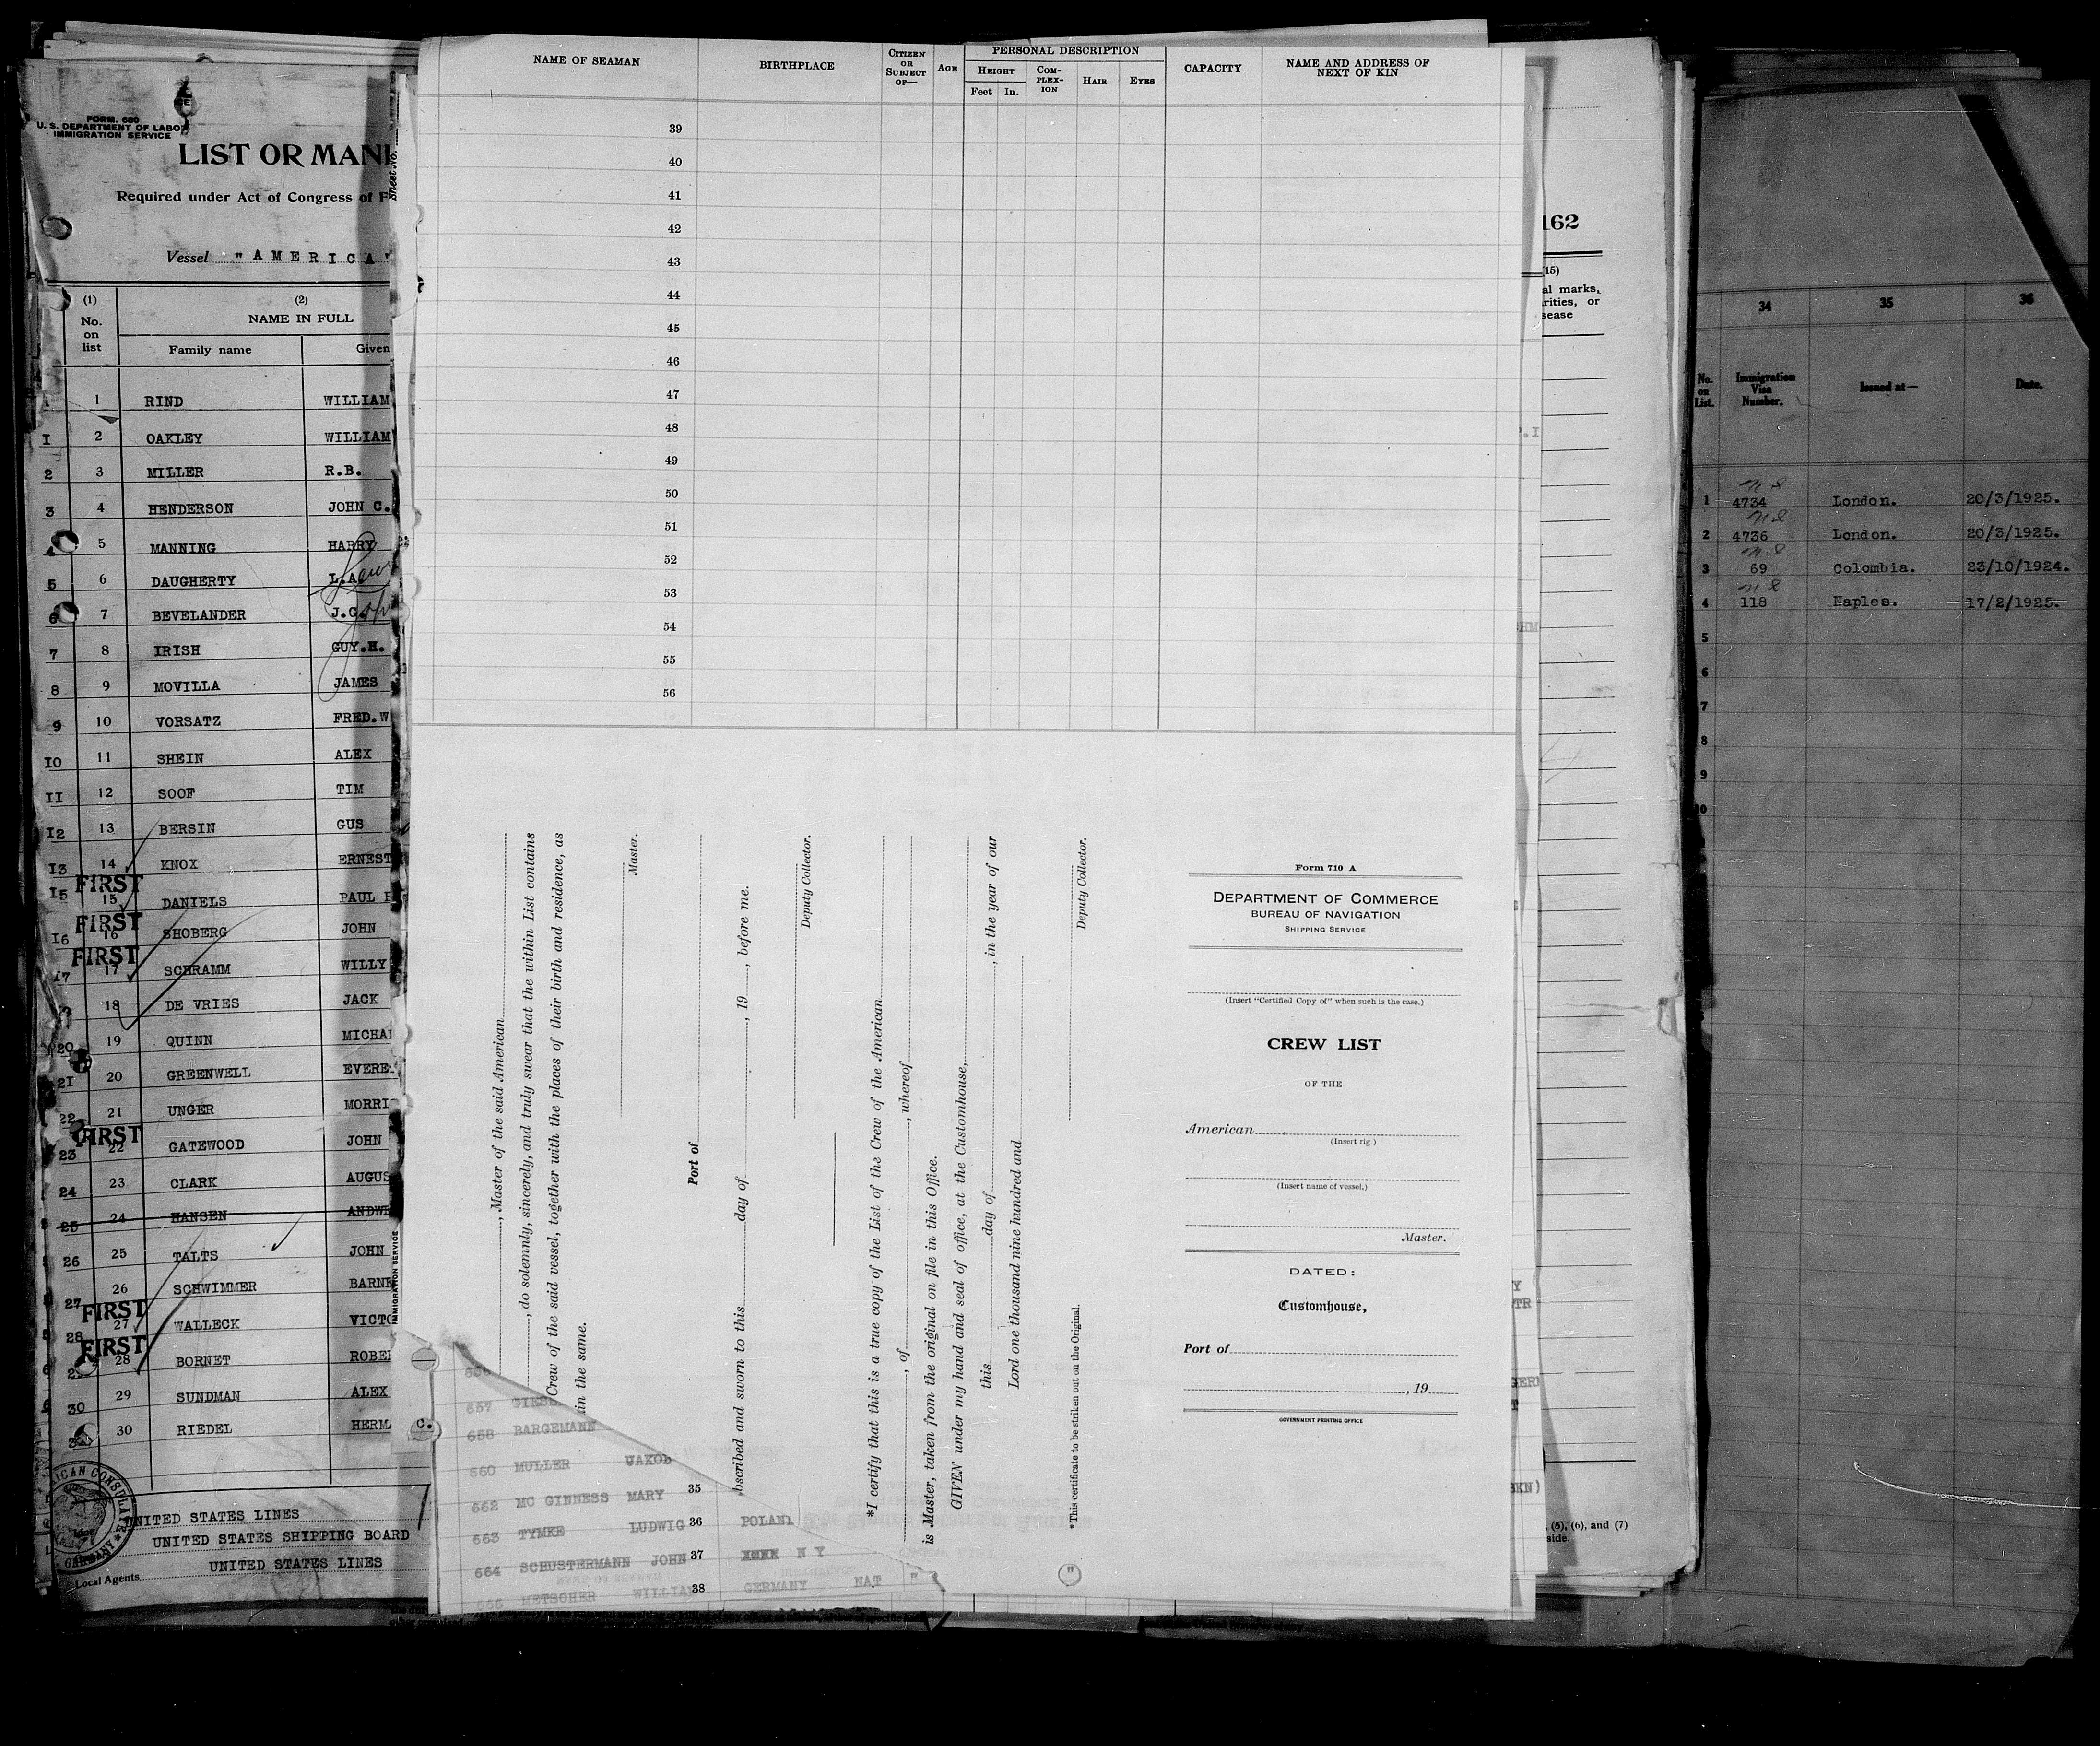 FORM. 680
U. S. DEPARTMENT OF LABOR
IMMIGRATION SERVICE
LIST OR MANI
Required under Act of Congress of F
Vessel "AMERICA"
(1) (2)
No. on list NAME IN FULL
Family name Given
1 RIND WILLIAM
I 2 OAKLEY WILLIAM
2 3 MILLER R.B.
3 4 HENDERSON JOHN C.
5 MANNING HARRY
5 6 DAUGHERTY L.A.
6 7 BEVELANDER J.G.
7 8 IRISH GUY.H.
8 9 MOVILLA JAMES
9 10 VORSATZ FRED.W
IO 11 SHEIN ALEX
II 12 SOOF TIM
I2 13 BERSIN GUS
I3 14 KNOX ERNEST
FIRST
I5 15 DANIELS PAUL
FIRST
I6 16 SHOBERG JOHN
FIRST
I7 17 SCHRAMM WILLY
18 DE VRIES JACK
20 19 QUINN MICHA
21 20 GREENWELL EVERE
22 21 UNGER MORRI
FIRST
23 22 GATEWOOD JOHN
24 23 CLARK AUGUS
25 24 HANSEN ANDW
26 25 TALTS JOHN
26 SCHWIMMER BARN
27 FIRST
27 WALLECK VICTO
28 FIRST
28 BORNET ROBE
29 SUNDMAN ALEX
30 30 RIEDEL HERM
UNITED STATES LINES
UNITED STATES SHIPPING BOARD
UNITED STATES LINES
Local Agents
Sheet No.
IMMIGRATION SERVICE
NAME OF SEAMAN BIRTHPLACE CITIZEN OR SUBJECT OF— AGE PERSONAL DESCRIPTION CAPACITY NAME AND ADDRESS OF NEXT OF KIN
HEIGHT COMPLEX-ION HAIR EYES
Feet In.
39
40
41
42
43
44
45
46
47
48
49
50
51
52
53
54
55
56
, Master of the said American
, do solemnly, sincerely, and truly swear that the within List contains
Crew of the said vessel, together with the places of their birth and residence, as
in the same.
Master.
Port of
bscribed and sworn to this day of , 19 , before me.
Deputy Collector.
*I certify that this is a true copy of the List of the Crew of the American
, of , whereof
is Master, taken from the original on file in this Office.
GIVEN under my hand and seal of office, at the Customhouse,
this day of , in the year of our
Lord one thousand nine hundred and
Deputy Collector.
*This certificate to be striken out on the Original.
Form 710 A
DEPARTMENT OF COMMERCE
BUREAU OF NAVIGATION
SHIPPING SERVICE
(Insert "Certified Copy of" when such is the case.)
CREW LIST
OF THE
American
(Insert rig.)
(Insert name of vessel.)
Master.
DATED:
Customhouse,
Port of
, 19
GOVERNMENT PRINTING OFFICE
657 GIESE
658 BARGEMANN
660 MULLER JAKOB
35
662 MC GINNESS MARY
663 TYMKE LUDWIG 36 POLAND
664 SCHUSTERMANN JOHN 37 N Y
666 METSCHER WILLIAM 38 GERMANY NAT "
162
(15)
al marks,
rities, or
sease
, (5), (6), and (7)
side.
34 35 36
No. on List. Immigration Visa Number. Issued at— Date.
1 4734 London. 20/3/1925.
2 4736 London. 20/3/1925.
3 69 Colombia. 23/10/1924.
4 118 Naples. 17/2/1925.
5
6
7
8
9
10